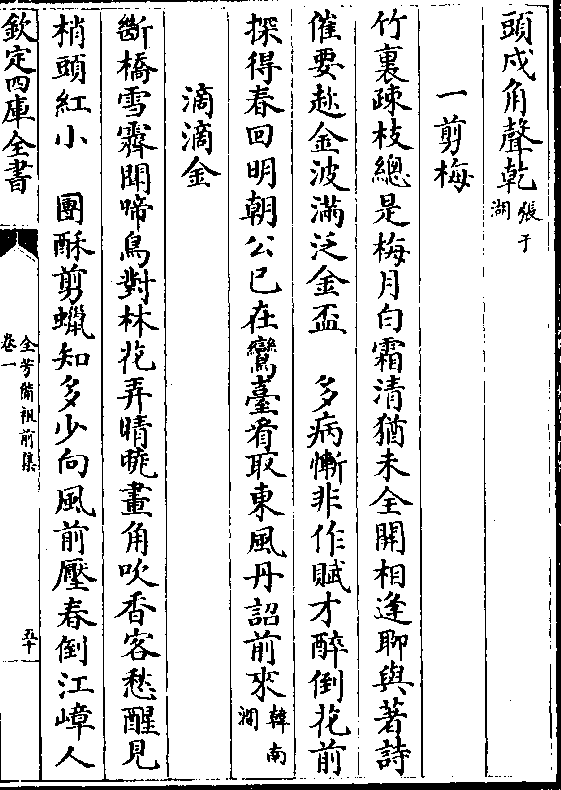 頭戍角聲乾張于湖
一剪梅
竹裏疎枝總是梅月白霜清猶未全開相逢聊與著詩
催要趂金波滿泛金盃　多病慚非作賦才醉倒花前
探得春回明朝公已在鸞臺看取東風丹詔前來韓南澗
滴滴金
斷橋雪霽聞啼鳥對林花弄晴曉畫角吹香客愁醒見
梢頭紅小　團酥剪蠟知多少向風前壓春倒江嶂人
欽定四庫全書
全芳備祖前集
卷一
五十